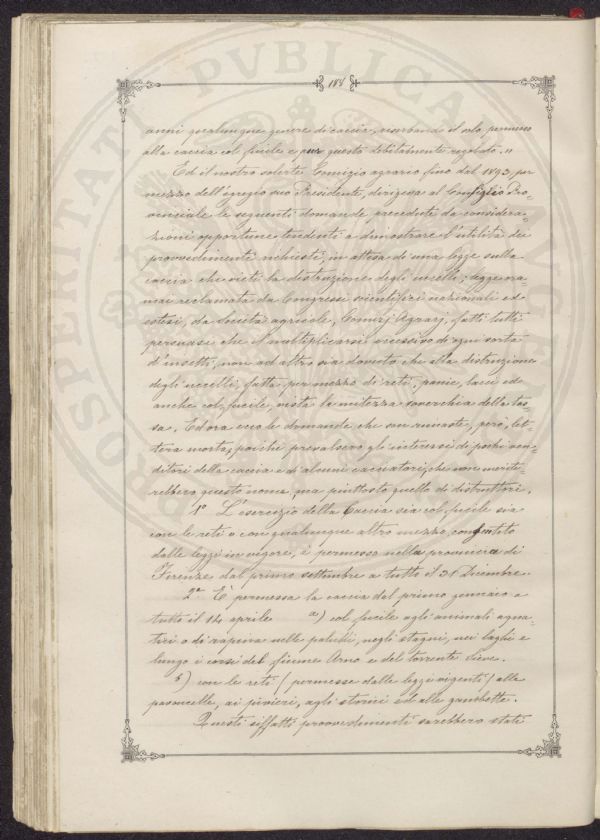 184
anni qualunque genere di caccia, riserbando il solo permesso
alla caccia col fucile e pur questo debitamente regolato."
Ed il nostro solerte Comizio agrario fino dal 1893, per
mezzo dell'egregio suo Presidente, dirigeva al Consiglio Pro=
vinciale le seguenti domande precedute da considera=
zioni opportune tendenti a dimostrare l'utilità dei
provvedimenti richiesti, in attesa di una legge sulla
caccia che vieti la distruzione degli uccelli; legge ora=
mai reclamata da Congressi scientifici nazionali ed
esteri, da Società agricole, Comizj Agrarj, fatti tutti
persuasi che il moltiplicarsi eccessivo di ogni sorta
d'insetti, non ad altro sia dovuto che alla distruzione
degli uccelli, fatta per mezzo di reti, panie, lacci ed
anche col fucile, vista la mitezza soverchia della tas=
sa. Ed ora ecco le domande che son rimaste, però, let=
tera morta, poichè prevalsero gli interessi di pochi ven=
ditori della caccia e di alcuni cacciatori, che non merite=
rebbero questo nome, ma piuttosto quello di distruttori.
1º L'esercizio della Caccia sia col fucile sia
con le reti o con qualunque altro mezzo consentito
dalle leggi in vigore, è permesso nella provincia di
Firenze dal primo settembre a tutto il 31 Dicembre.
2º È permessa la caccia dal primo gennaio a
tutto il 14 aprile a) col fucile agli animali aqua=
tici o di rapina nelle paludi, negli stagni, nei laghi e
lungo i corsi del fiume Arno e del torrente Sieve.
b) con le reti (permesse dalle leggi vigenti) alle
pavoncelle, ai pivieri, agli storni ed alle gambette.
Questi siffatti provvedimenti sarebbero stati
PROSPERITATI PVBLICAE AVGENDAE